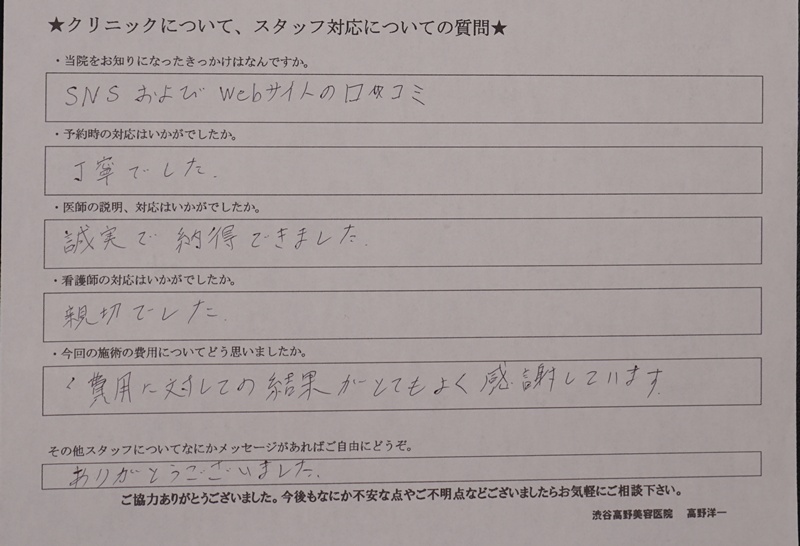 ★クリニックについて、スタッフ対応についての質問★
・当院をお知りになったきっかけはなんですか。
SNSおよびWebサイトの口コミ
・予約時の対応はいかがでしたか。
丁寧でした.
・医師の説明、対応はいかがでしたか。
誠実で納得できました.
・看護師の対応はいかがでしたか。
親切でした.
・今回の施術の費用についてどう思いましたか。
費用に対しての結果がとてもよく感謝しています.
その他スタッフについてなにかメッセージがあればご自由にどうぞ。
ありがとうございました.
ご協力ありがとうございました。今後もなにか不安な点やご不明点などございましたらお気軽にご相談下さい。
渋谷高野美容医院 高野洋一